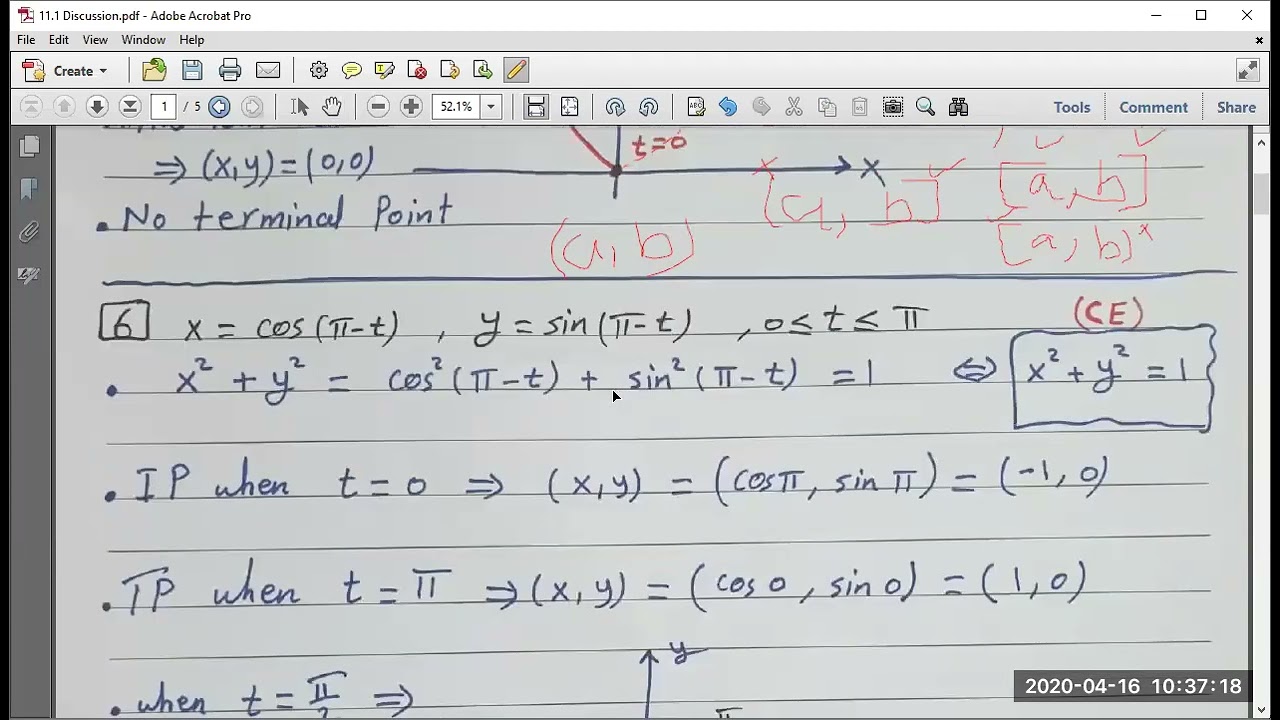 11.1 Discussion.pdf - Adobe Acrobat Pro
File Edit View Window Help
Create
1 / 5 52.1% Tools Comment Share
t=0
⇒ (x,y) = (0,0) X
(a, b] [a, b]
• No terminal Point
(a, b) [a, b)
6 x = cos(π-t) , y = sin(π-t) , 0 ≤ t ≤ π (CE)
• x² + y² = cos²(π-t) + sin²(π-t) = 1 ⇔ x² + y² = 1
• IP when t = 0 ⇒ (x,y) = (cosπ, sin π) = (-1, 0)
• TP when t = π ⇒ (x, y) = (cos0, sin0) = (1, 0)
y
• when t = π/2 ⇒
2020-04-16 10:37:18